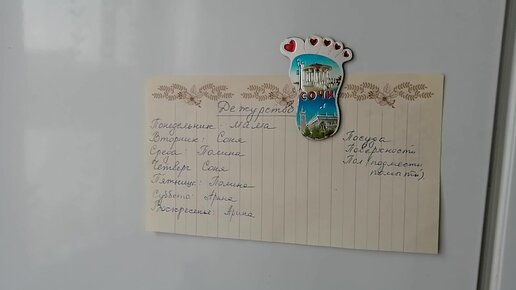 СОЧИ
Дежурство
Понедельник: мама
Вторник: Соня
Среда: Полина
Четверг Соня
Пятница: Полина
Суббота: Арина
Воскресенье: Арина
Посуда
Поверхность
Пол (подмести
помыть)